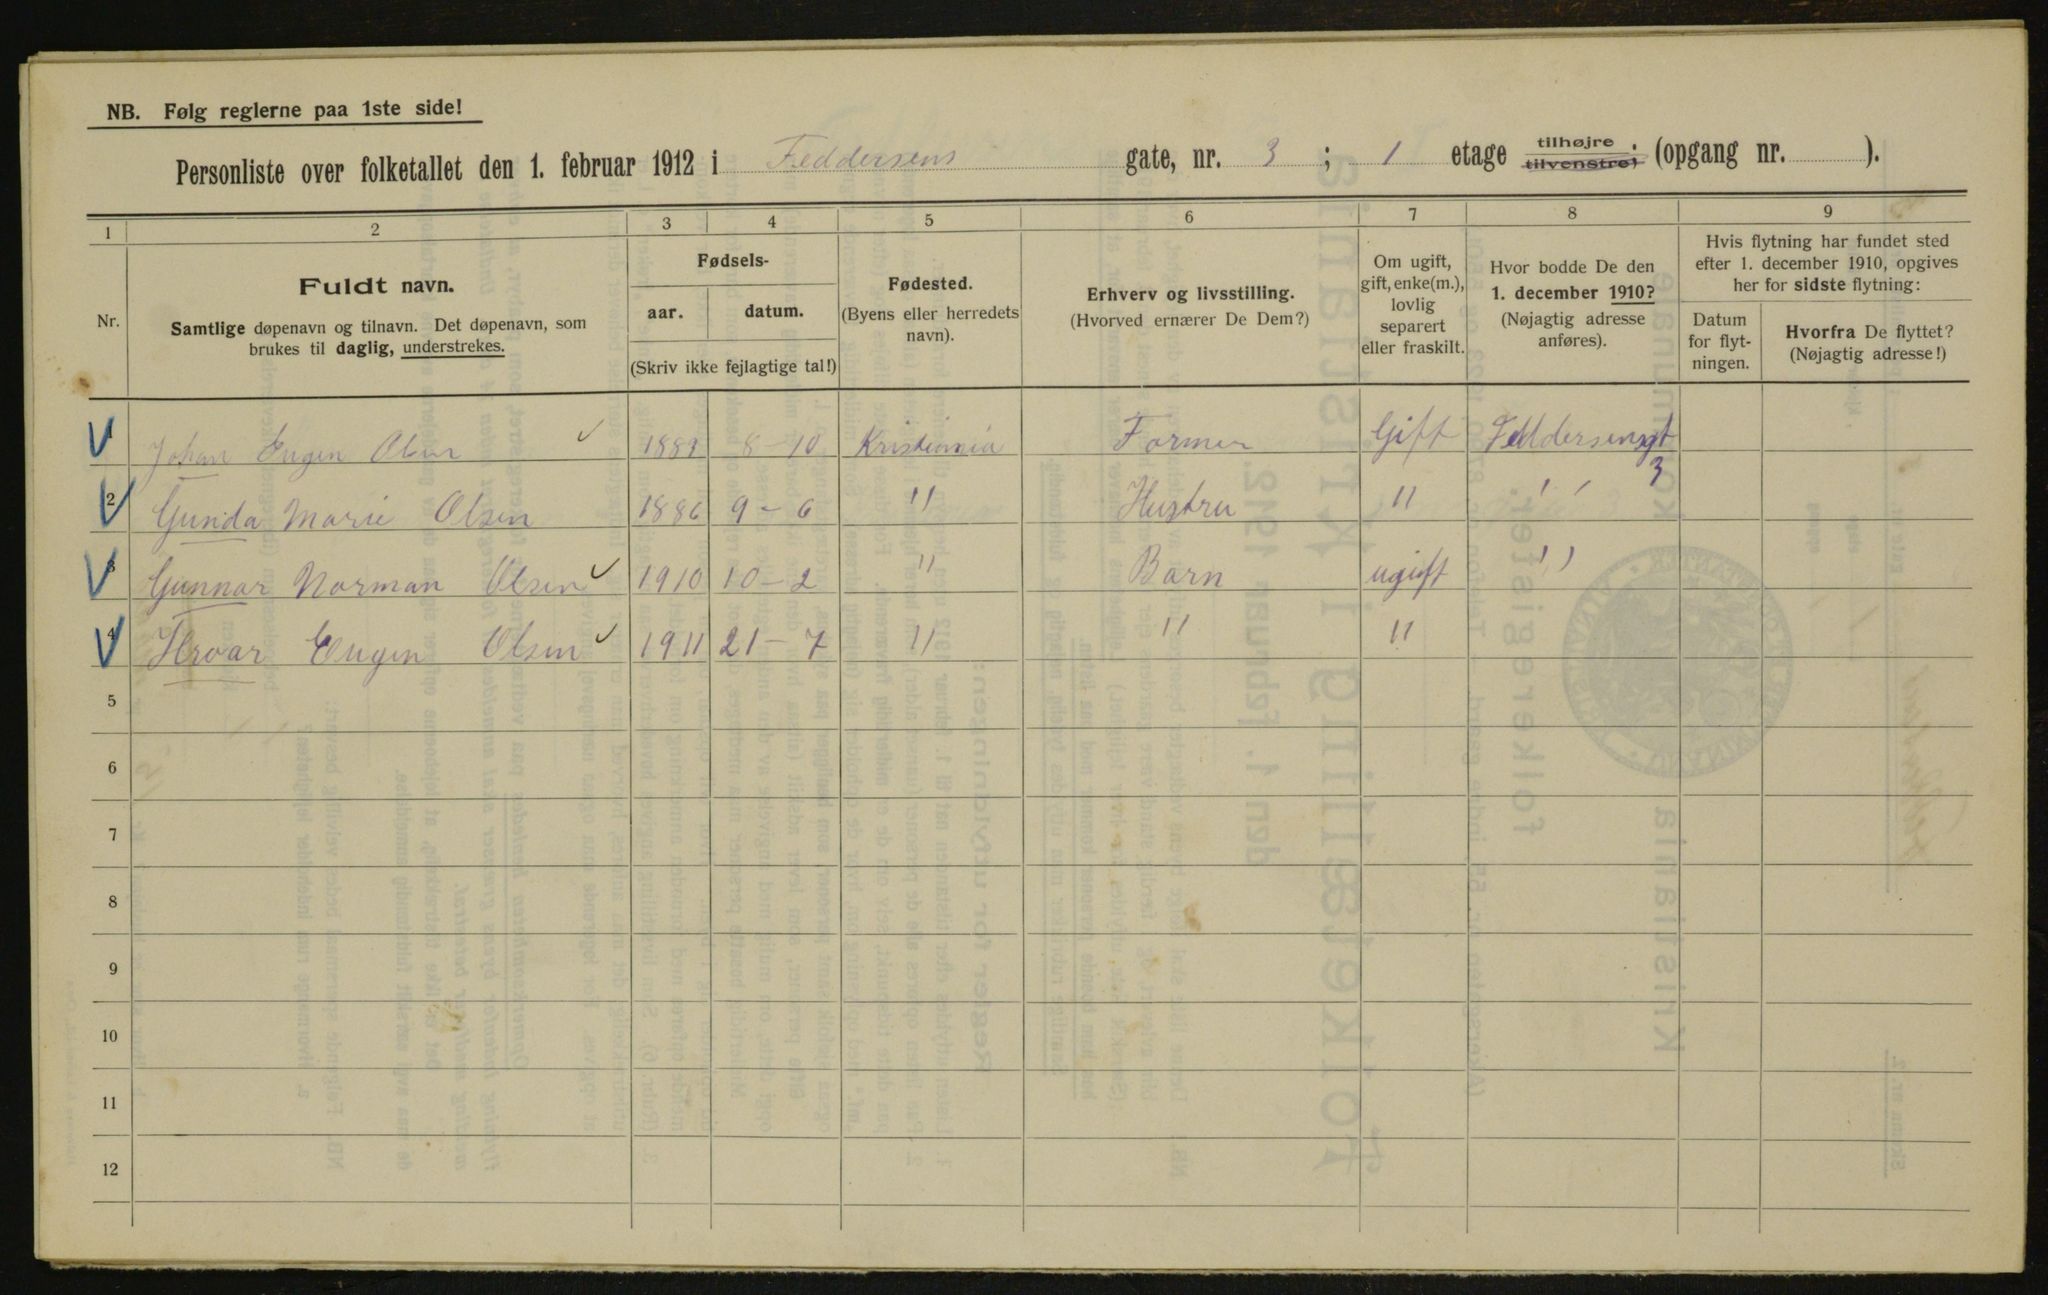 NB. Følg reglerne paa 1ste side!
Personliste over folketallet den 1. februar 1912 i Feddersens gate, nr. 3 ; 1 etage tilhøjre, tilvenstre, (opgang nr. ).
1 2 3 4 5 6 7 8 9
Nr.
Fuldt navn.
Samtlige døpenavn og tilnavn. Det døpenavn, som
brukes til daglig, understrekes.
Fødsels-
aar. datum.
(Skriv ikke fejlagtige tal!)
Fødested.
(Byens eller herredets
navn).
Erhverv og livsstilling.
(Hvorved ernærer De Dem?)
Om ugift,
gift, enke(m.),
lovlig
separert
eller fraskilt.
Hvor bodde De den
1. december 1910?
(Nøjagtig adresse
anføres).
Hvis flytning har fundet sted
efter 1. december 1910, opgives
her for sidste flytning:
Datum
for flyt-
ningen.
Hvorfra De flyttet?
(Nøjagtig adresse!)
1 Johan Eugen Olsen 1889 8-10 Kristiania Former Gift Feddersensgt
3
2 Gunda Marie Olsen 1886 9-6 " Hustru " "
3 Gunnar Norman Olsen 1910 10-2 " Barn ugift "
4 Hroar Eugen Olsen 1911 21-7 " " "
5
6
7
8
9
10
11
12